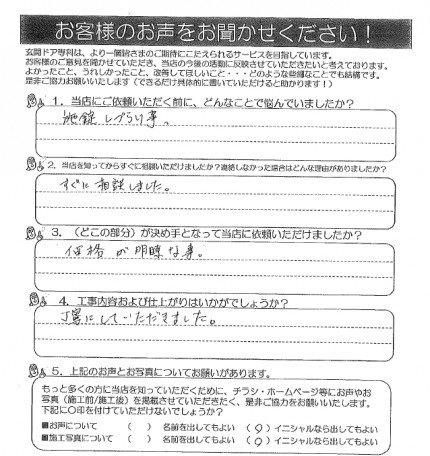 お客様のお声をお聞かせください！
玄関ドア専科は、より一層皆さまのご期待にこたえられるサービスを目指しています。
お客様のご意見を聞かせていただき、当店の今後の活動に反映させていただきたいと考えております。
よかったこと、うれしかったこと、改善してほしいこと・・・どのような些細なことでも結構です。
是非ご協力お願いします（できるだけ具体的に書いていただけると助かります！）
1．当店にご依頼いただく前に、どんなことで悩んでいましたか？
施錠しづらい事。
2．当店を知ってからすぐに相談いただけましたか？連絡しなかった場合はどんな理由がありましたか？
すぐに相談しました。
3．（どこの部分）が決め手となって当店に依頼いただけましたか？
価格が明瞭な事。
4．工事内容および仕上がりはいかがでしょうか？
丁寧にしていただきました。
5．上記のお声とお写真についてお願いがあります。
もっと多くの方に当店を知っていただくために、チラシ・ホームページ等にお声やお
写真（施工前/施工後）を掲載させていただきたく、是非ご協力をお願いいたします。
下記に〇印を付けていただけないでしょうか？
■お声について （ ） 名前を出してもよい （〇）イニシャルなら出してもよい
■施工写真について （ ） 名前を出してもよい （〇）イニシャルなら出してもよい